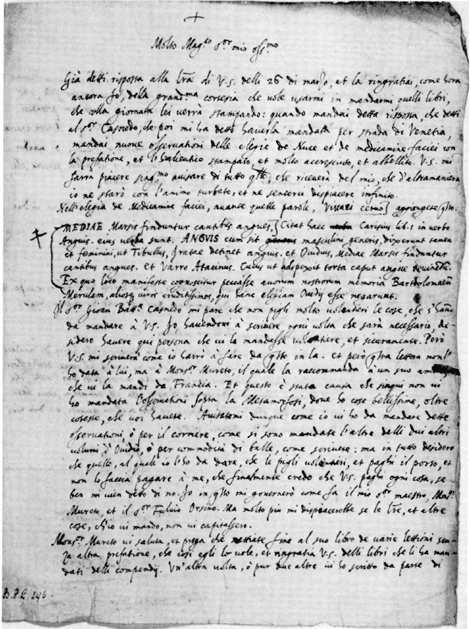 Molto Mag.co S.or mio oss.mo
Già detti risposta alla lra di V.S. delli 26 di marzo, et la ringratiai, come hora
ancora fo, della grand.ma cortesia che vole usarmi in mandarmi quelli libri,
che alla giornata lei verrà stampando: quando mandai detta risposta, che detti
al S.or Castedo, che poi mi ha detto haverla mandata per strada di Venetia,
mandai nuove osservationi delle elegie de Nuce et de medicamine faciei con
la prefatione, et l'Halieutico stampato, et molto accresciuto, et abbellito. V.S. mi
farà piacere sing.mo avisare di tutto q.llo, che riceverà del mio, che d'altramaniera
io ne starò con l'animo turbato, et ne sentirei dispiacere infinito.
Nell'elegia de Medicamine faciei, avante quelle parole, aggiongerete q.sto.
MEDIAE Marsis finduntur cantibus angues, Citat haec Carisius lib.1 in verbo
Anguis. eius verba sunt. ANGVIS cum sit masculini generis, dixerunt tamen
et feminini, ut Tibullus, Iratae detinet angues. et Ovidius, Mediae Marsis finduntur
cantibus angues. et Varro Atacinus. Cuius ut aspexit torta caput angue
Ex quo loco manifeste cognoscitur peccasse quorum nostrorum memoria Bartholomaeum
Merulam, aliosq. viros eruditissimos, qui hanc elegiam Ovidij esse negarunt.
Il S.or Gioan Batt.a Castedo mi pare che non pigli molto volentieri le cose, che s'hanno
da mandare à V.S. Io, havendovi à scrivere, ogni volta che sarà necessario, de-
sidero havere qui persona che vi la mandasse volentiere, et sicuramente. Però
V.S. mi scriverà come io harò à fare da q.sto in la. et però q.sta lettera non l'
ho data à lui, ma à Mons.r Mureto, il quale la raccomanda à un suo amico
che vi la mandi da Francia. Et questo è stata causa che finqui non vi
ho mandato l'osservationi sopra la Metamorfosi, dove ho cose bellissime, oltre
coteste, che voi havete. Avisatemi dunque come io vi ho da mandare dette
osservationi, ò per il corriere, come si sono mandate l'altre delli dui altri
volumi d'Ovidio, ò per commodità di balle, come scrivete: ma in tutto desidero
che quello, al quale io l'ho da dare, che le pigli volentieri, et paghi il porto, et
non lo faccia pagare à me, che finalmente credo che V.S. paghi ogni cosa, se
ben mi vien detto di no. Io in q.sto mi governerò come fa il mio S.or maestro, Mons.r
Mureto, et il S.or Fulvio Orsino. Ma molto più mi dispiacerebbe se le lre, et altre
cose, ch'io vi mando, non vi capitassero.
Mons.r Mureto vi saluta, et prega che mettiate fine al suo libro de varie lettioni sen-
za altra prefatione, che così egli lo vole, et ringratia V.S. delli libri che li ha man-
dati delli compendij. Un'altra volta, ò pur due altre vi ho scritto da parte di